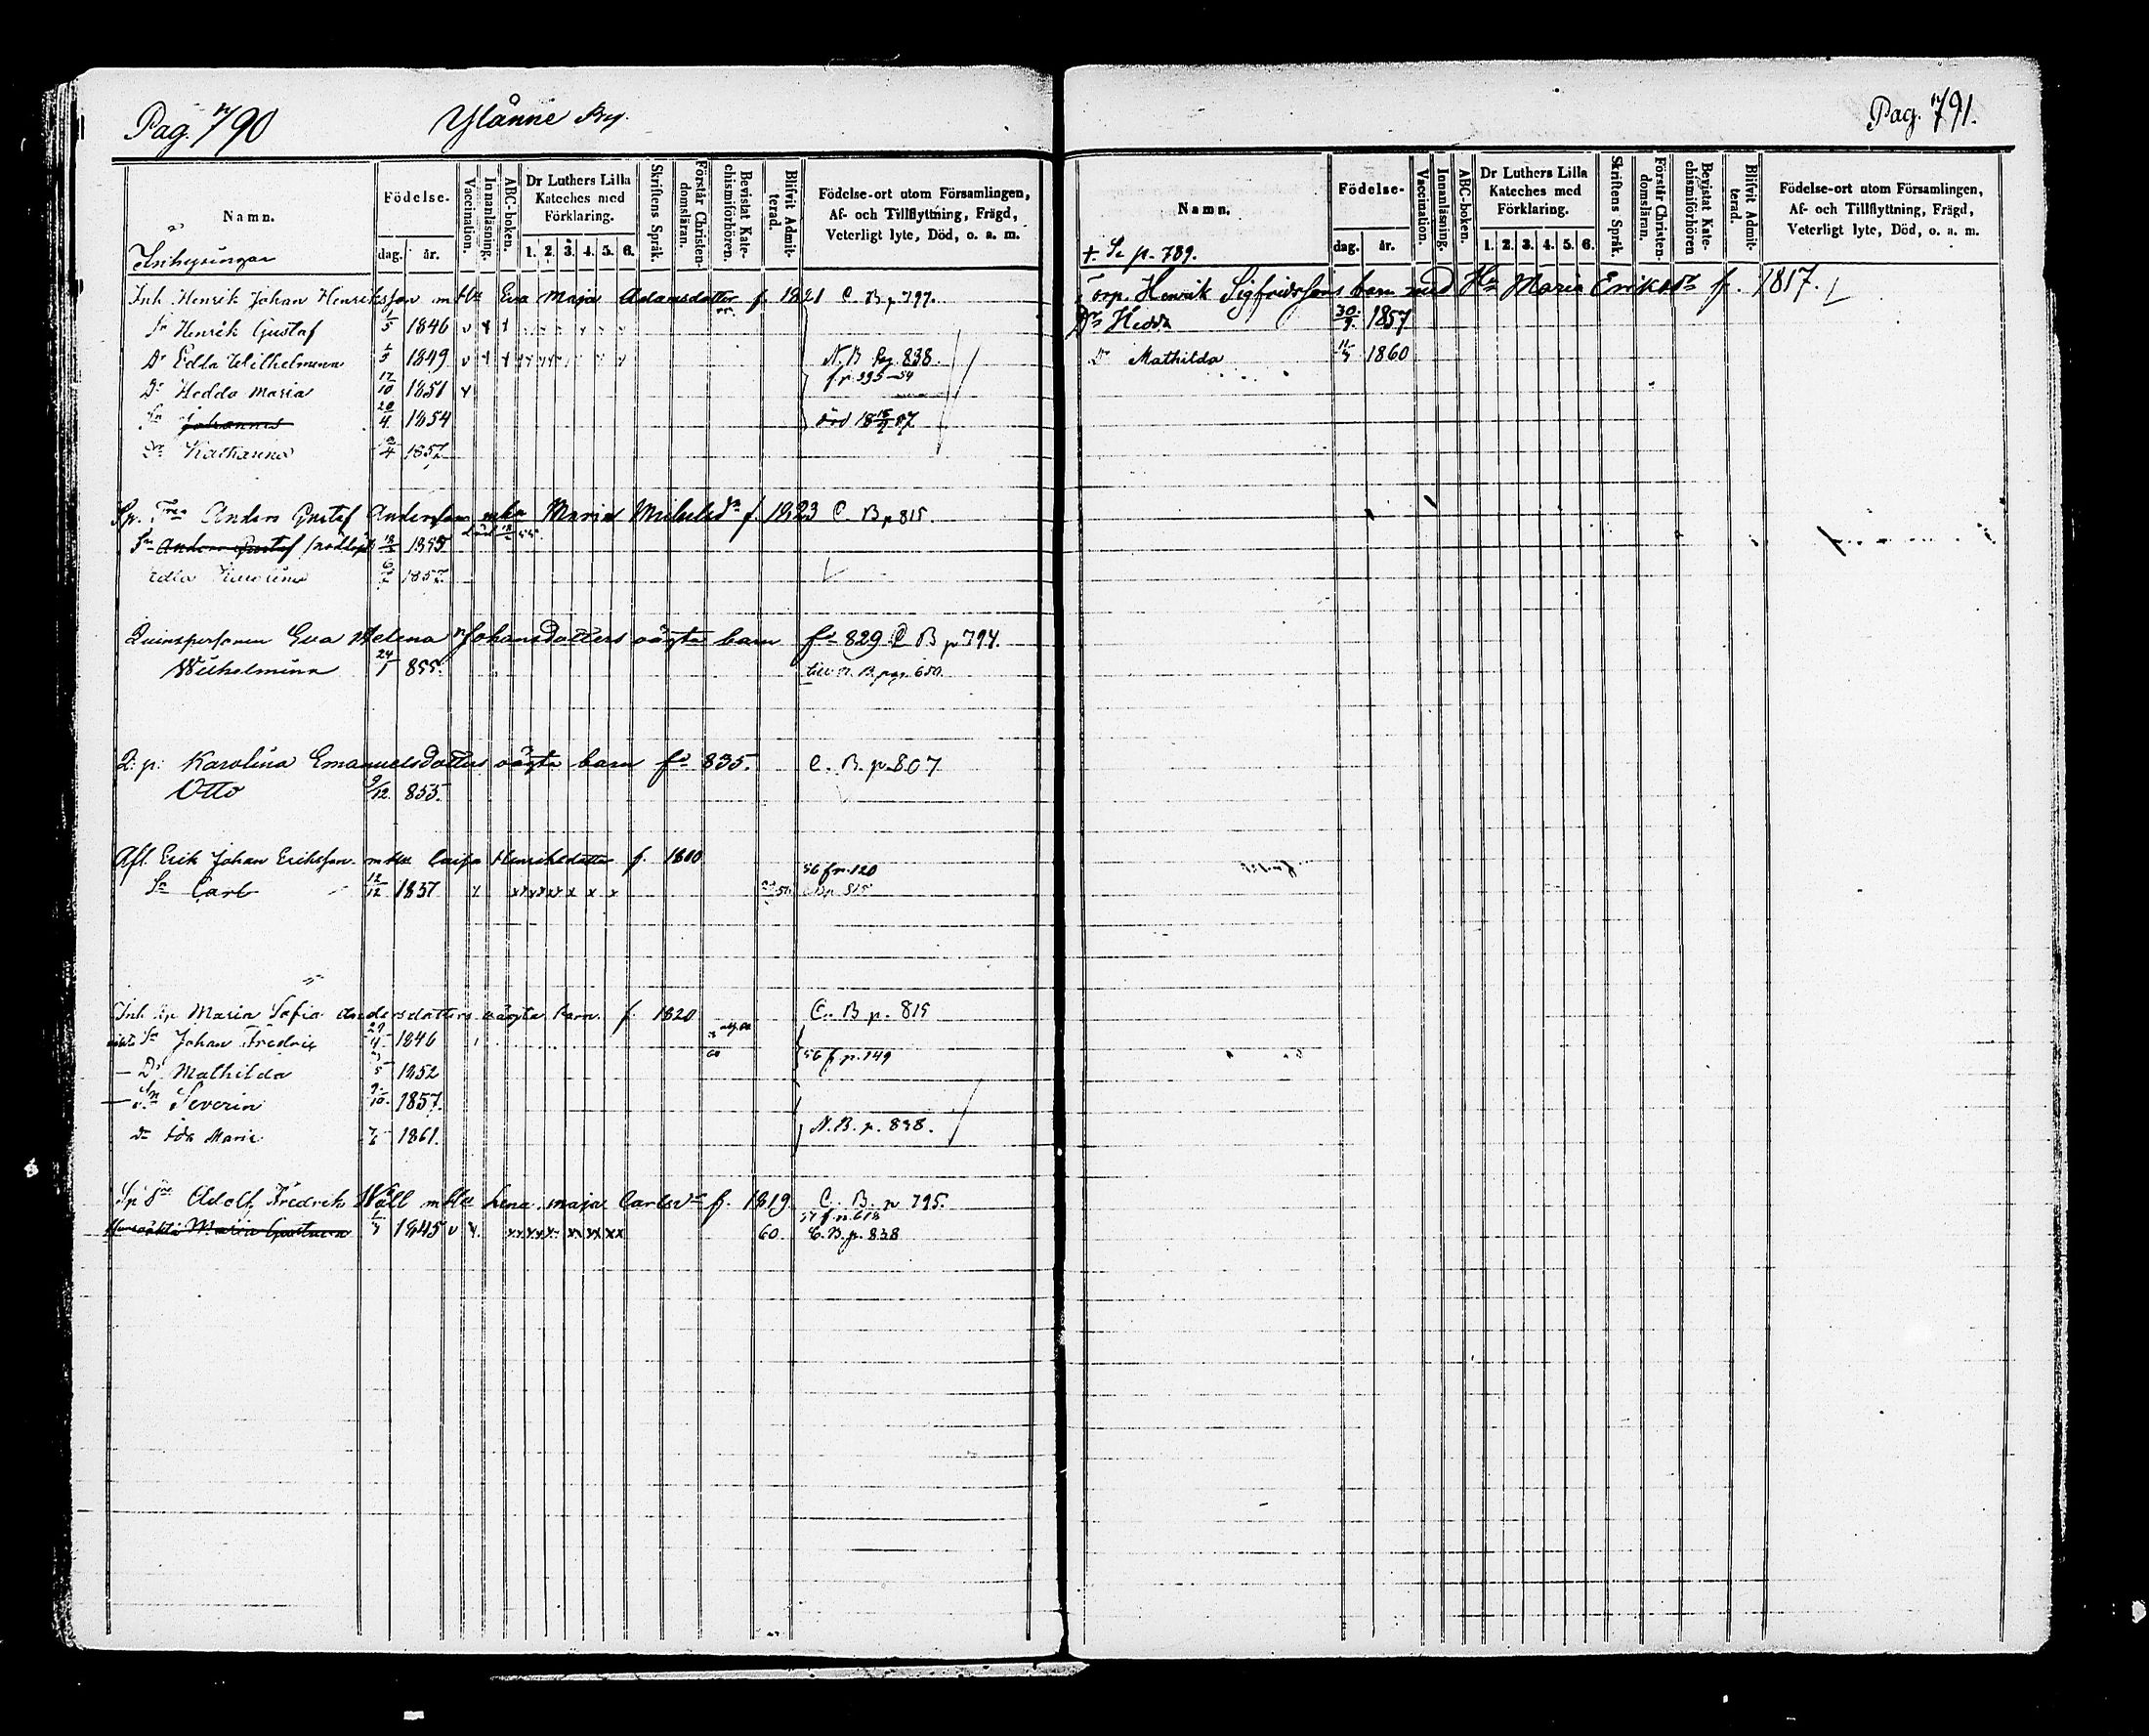 Pag. 790
Ylänne By.
Namn.
Födelse.
dag. år.
Vaccination.
Innanläsning.
ABC-boken.
Dr Luthers Lilla Kateches med Förklaring.
1. 2. 3. 4. 5. 6.
Skriftens Språk.
Förstår Christendomsläran.
Bevistat Katechismiförhören.
Blifvit Admitterad.
Födelse-ort utom Församlingen,
Af- och Tillflyttning, Frägd,
Veterligt lyte, Död, o. a. m.
Inh. Henrik Johan Henriksson m Hu Eva Maja Adamsdotter f. 1821 C. B p 797.
Sn Henrik Gustaf 1846
Dr Edla Wilhelmina 1/5 1849 N. B Pag. 838.
Dr Hedda Maria 17/10 1851
Sn Johannes 20/4 1854
Dr Katharina 1857
Anders Gustaf Andersson Maria f. 1823 C. B p 815.
Sn Anders Gustaf 1855
Edla Karolina 1857
Qvinspersonen Eva Helena Johansdotters oägta barn fd 829 C B p 794.
Wilhelmina 24/1 855. till N. B. pag. 650.
Q: p: Karolina Emanuelsdotters oägta barn fd 835. C. B. p. 807
Otto 9/12 853.
Afl. Erik Johan Eriksson m Hu Caisa Henriksdotter f. 1800
Sn Carl 12/12 1837 56 fr. 120
Inh Maria Sofia Andersdotters oägta barn f. 1820 C. B p. 815
Sn Johan Fredric 1846 56 f. p. 149
— Dr Mathilda 1852
— Sn Severin 9/10 1857.
Dr Ida Maria 1861. N. B. p. 838.
Adolf Fredrik Wall m Hu Lena Maja Carlsdr f. 1819 C. B. p 795.
Maria Gustava 1845 60. C. B. p. 838
Pag. 791.
Namn.
Födelse-
dag. år.
Vaccination.
Innanläsning.
ABC-boken.
Dr Luthers Lilla Kateches med Förklaring.
1. 2. 3. 4. 5. 6.
Skriftens Språk.
Förstår Christendomsläran.
Bevistat Katechismiförhören
Blifvit Admitterad.
Födelse-ort utom Församlingen,
Af- och Tillflyttning, Frägd,
Veterligt lyte, Död, o. a. m.
+. Se p. 789.
Torp. Henrik Sigfridssons barn med Hu Maria Eriksdr f. 1817.
Dr Hedda 30/9. 1857
Dr Mathilda 1860